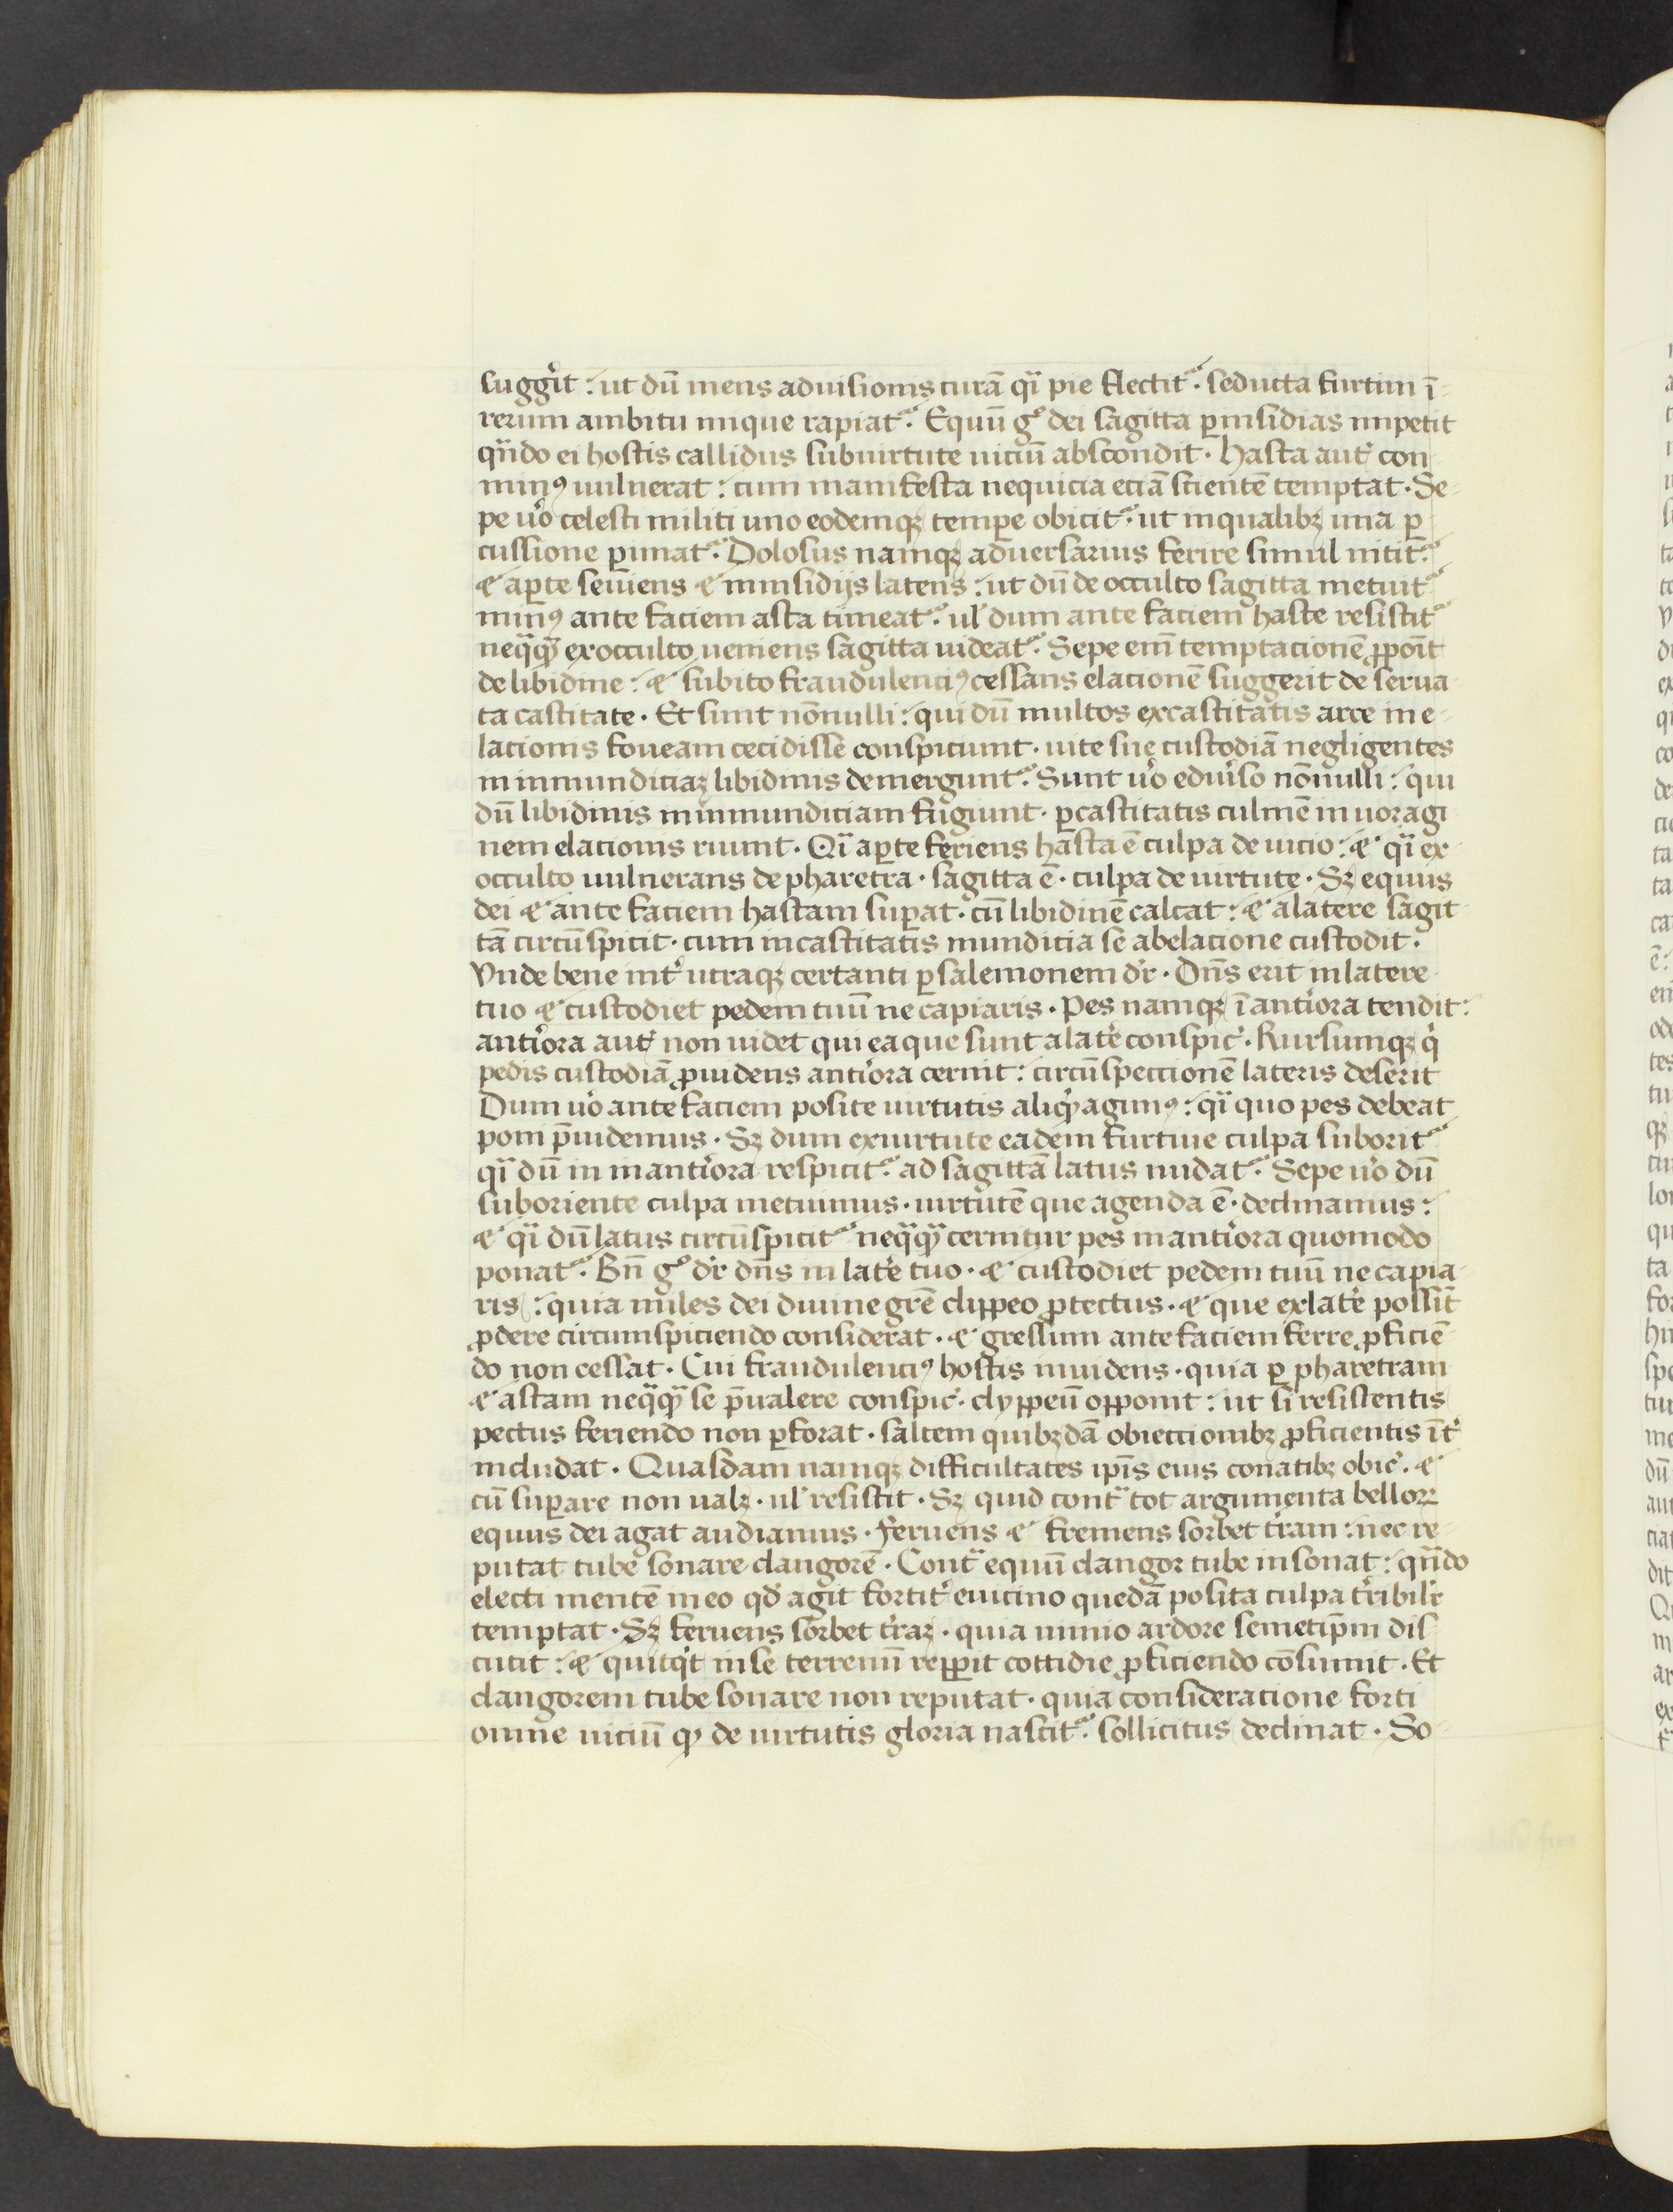 sugg̉it : ut dū mens aduisionis curā qͣi pie flectitᷣ · seducta furtim ī
rerum ambitu inique rapiatᷣ · Equū gͦ dei sagitta ꝑ insidias impetit
qn̄do ei hostis callidus subuirtute uiciū abscondit · hasta aut̉ con
minꝰ uulnerat : cum manifesta nequicia eciā scientē temptat · Se
pe ůo celesti militi uno eodemqꝫ tempe obicitᷣ · ut inqualibꝫ una ꝑ
cussione ꝑimatᷣ · Dolosus namqꝫ aduersarius ferire simul nititᷣ ·
⁊ aꝑte seuiens ⁊ ininsidijs latens : ut dū de occulto sagitta metuitᷣ
minꝰ ante faciem asta timeatᷣ · ul̉ dum ante faciem haste resistitᷣ
neqͣqͣꝫ exocculto ueniens sagitta uideatᷣ · Sepe em̄ temptacionē ꝓponit̄
de libidine : ⁊ subito fraudulenciꝰ cessans elacionē suggerit de serua
ta castitate · Et sunt nōnulli : qui dū multos excastitatis arce in e
lacionis foueam cecidisse conspiciunt · uite sue custodiā negligentes
in inmundiciaꝫ libidinis demerguntᷣ · Sunt ůo eduůso nōnulli : qui
dū libidinis inmundiciam fugiunt · ꝑcastitatis culmē in uoragi
nem elacionis ruunt · Qͣi aꝑte feriens hasta ē culpa de uicio : ⁊ qͣi ex
occulto uulnerans de pharetra · sagitta ē · culpa de uirtute · Sꝫ equus
dei ⁊ ante faciem hastam suꝑat · cū libidinē calcat : ⁊ alatere sagit
tā circūspicit · cum incastitatis mundicia se abelacione custodit ·
Vnde bene int̉ utraqꝫ certanti ꝑ salemonem dr̄ · Dn̄s erit inlatere
tuo ⁊ custodiet pedem tuū ne capiaris · Pes namqꝫ ī anti̊ora tendit :
anti̊ora aut̉ non uidet qui ea que sunt alat̉e conspic̉ · Rursumqꝫ q̊
pedis custodiā ꝓuidens anti̊ora cernit : circūspeccionē lateris deserit
Dum ůo ante faciem posite uirtutis aliqͥd agimꝰ : qͣi quo pes debeat
poni p̄uidemus · Sꝫ dum exuirtute eadem furtiue culpa suboritᷣ
qͣi dū in inanti̊ora respicitᷣ · ad sagittā latus nudatᷣ · Sepe ůo dū
suboriente culpa metuimus · uirtutē que agenda ē · declinamus :
⁊ qͣi dū latus circūspicitᷣ neqͣqͣꝫ cernitur pes inanti̊ora quomodo
ponatᷣ · Bn̄ gͦ dr̄ dn̄s in lat̉e tuo · ⁊ custodiet pedem tuū ne capia
ris : quia miles dei diuine grē clippeo ꝓtectus · ⁊ que exlat̉e possit̄
ꝓdere circumspiciendo considerat · ⁊ gressum ante faciem ferre ꝓficiē
do non cessat · Cui fraudulenciꝰ hostis inuidens · quia ꝑ pharetram
⁊ astam neqͣqͣꝫ se p̄ualere conspic̉ · clyppeū opponit : ut si resistentis
pectus feriendo non ꝑforat · saltem quibꝫdā obieccionibꝫ ꝓficientis īt̉
includat · Quasdam namqꝫ difficultates ipīs eius conatibꝫ obic̉ · ⁊
cū suꝑare non ualꝫ · ul̉ resistit · Sꝫ quid contͣ tot argumenta belloꝝ
equus dei agat audiamus · Feruens ⁊ fremens sorbet t̉ram : nec re
putat tube sonare clangorē · Contͣ equū clangor tube insonat : qn̄do
electi mentē in eo qd̉ agit fortit̉ euicino quedā posita culpa t̉ribilit̉
temptat · Sꝫ feruens sorbet t̉raꝫ · quia nimio ardore semetip̄m dis
cutit : ⁊ quitqͥt inse terrenū repꝑit cottidie ꝓficiendo cōsumit · Et
clangorem tube sonare non reputat · quia consideracione forti
omne uiciū qͥ de uirtutis gloria nascitᷣ · sollicitus declinat · So